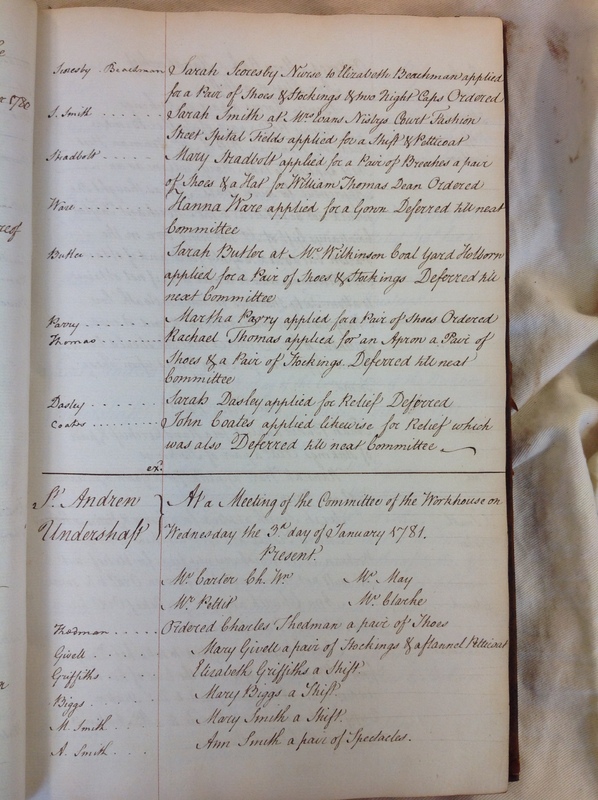 r 1780
Scoresby Beachman Sarah Scoresby Nurse to Elizabeth Beachman applied
for a Pair of Shoes & Stockings & two Night Caps Ordered
S. Smith . . . . . . . Sarah Smith at Mrs Evans Nisbys Court Fashion
Street Spital Fields applied for a Shift & Petticoat
Stadbolt . . . . . . . Mary Stadbolt applied for a Pair of Breeches a pair
of Shoes & a Hat for William Thomas Dean Ordered
Ware . . . . . . . . Hanna Ware applied for a Gown Deferred till next
Committee
Butler . . . . . . . Sarah Butler at Mr Wilkinson Coal Yard Holborn
applied for a Pair of Shoes & Stockings Deferred till
next Committee
Parry . . . . . . . . Martha Parry applied for a Pair of Shoes Ordered
Thomas . . . . . . . Rachael Thomas applied for an Apron a Pair of
Shoes & a Pair of Stockings Deferred till next
Committee
Dasley . . . . . . . Sarah Dasley applied for Relief Deferred
Coates . . . . . . . John Coates applied likewise for Relief which
was also Deferred till next Committee
exd
St Andrew } At a Meeting of the Committee of the Workhouse on
Undershaft } Wednesday the 3d day of January 1781.
Present
Mr Carter Ch. Wn Mr May
Mr Pellit Mr Clarke
Thedman . . . . . Ordered Charles Thedman a pair of Shoes
Givell . . . . . . Mary Givell a pair of Stockings & a flannel Petticoat
Griffiths . . . . Elizabeth Griffiths a Shift
Biggs . . . . . . Mary Biggs a Shift
M. Smith . . . . Mary Smith a Shift.
A. Smith . . . . Ann Smith a pair of Spectacles.